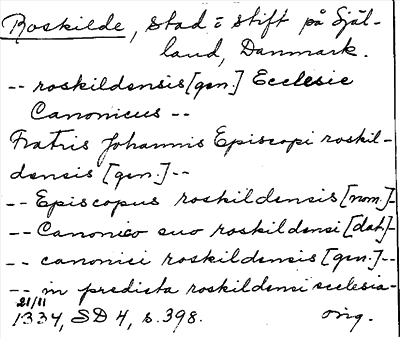 Roskilde, Stad i Stift på Själ-
land, Danmark.
-- roskildensis [gen.] Ecclesie
Canonicus --
Fratris Johannis Episcopi roskil-
densis [gen.] --
-- Episcopus roskildensis [nom.] -
-- Canonico suo roskildensi [dat.] -
-- canonici roskildensis [gen.] --
-- in predicta roskildensi ecclesia -
21/11
1334, SD 4, s. 398. orig.